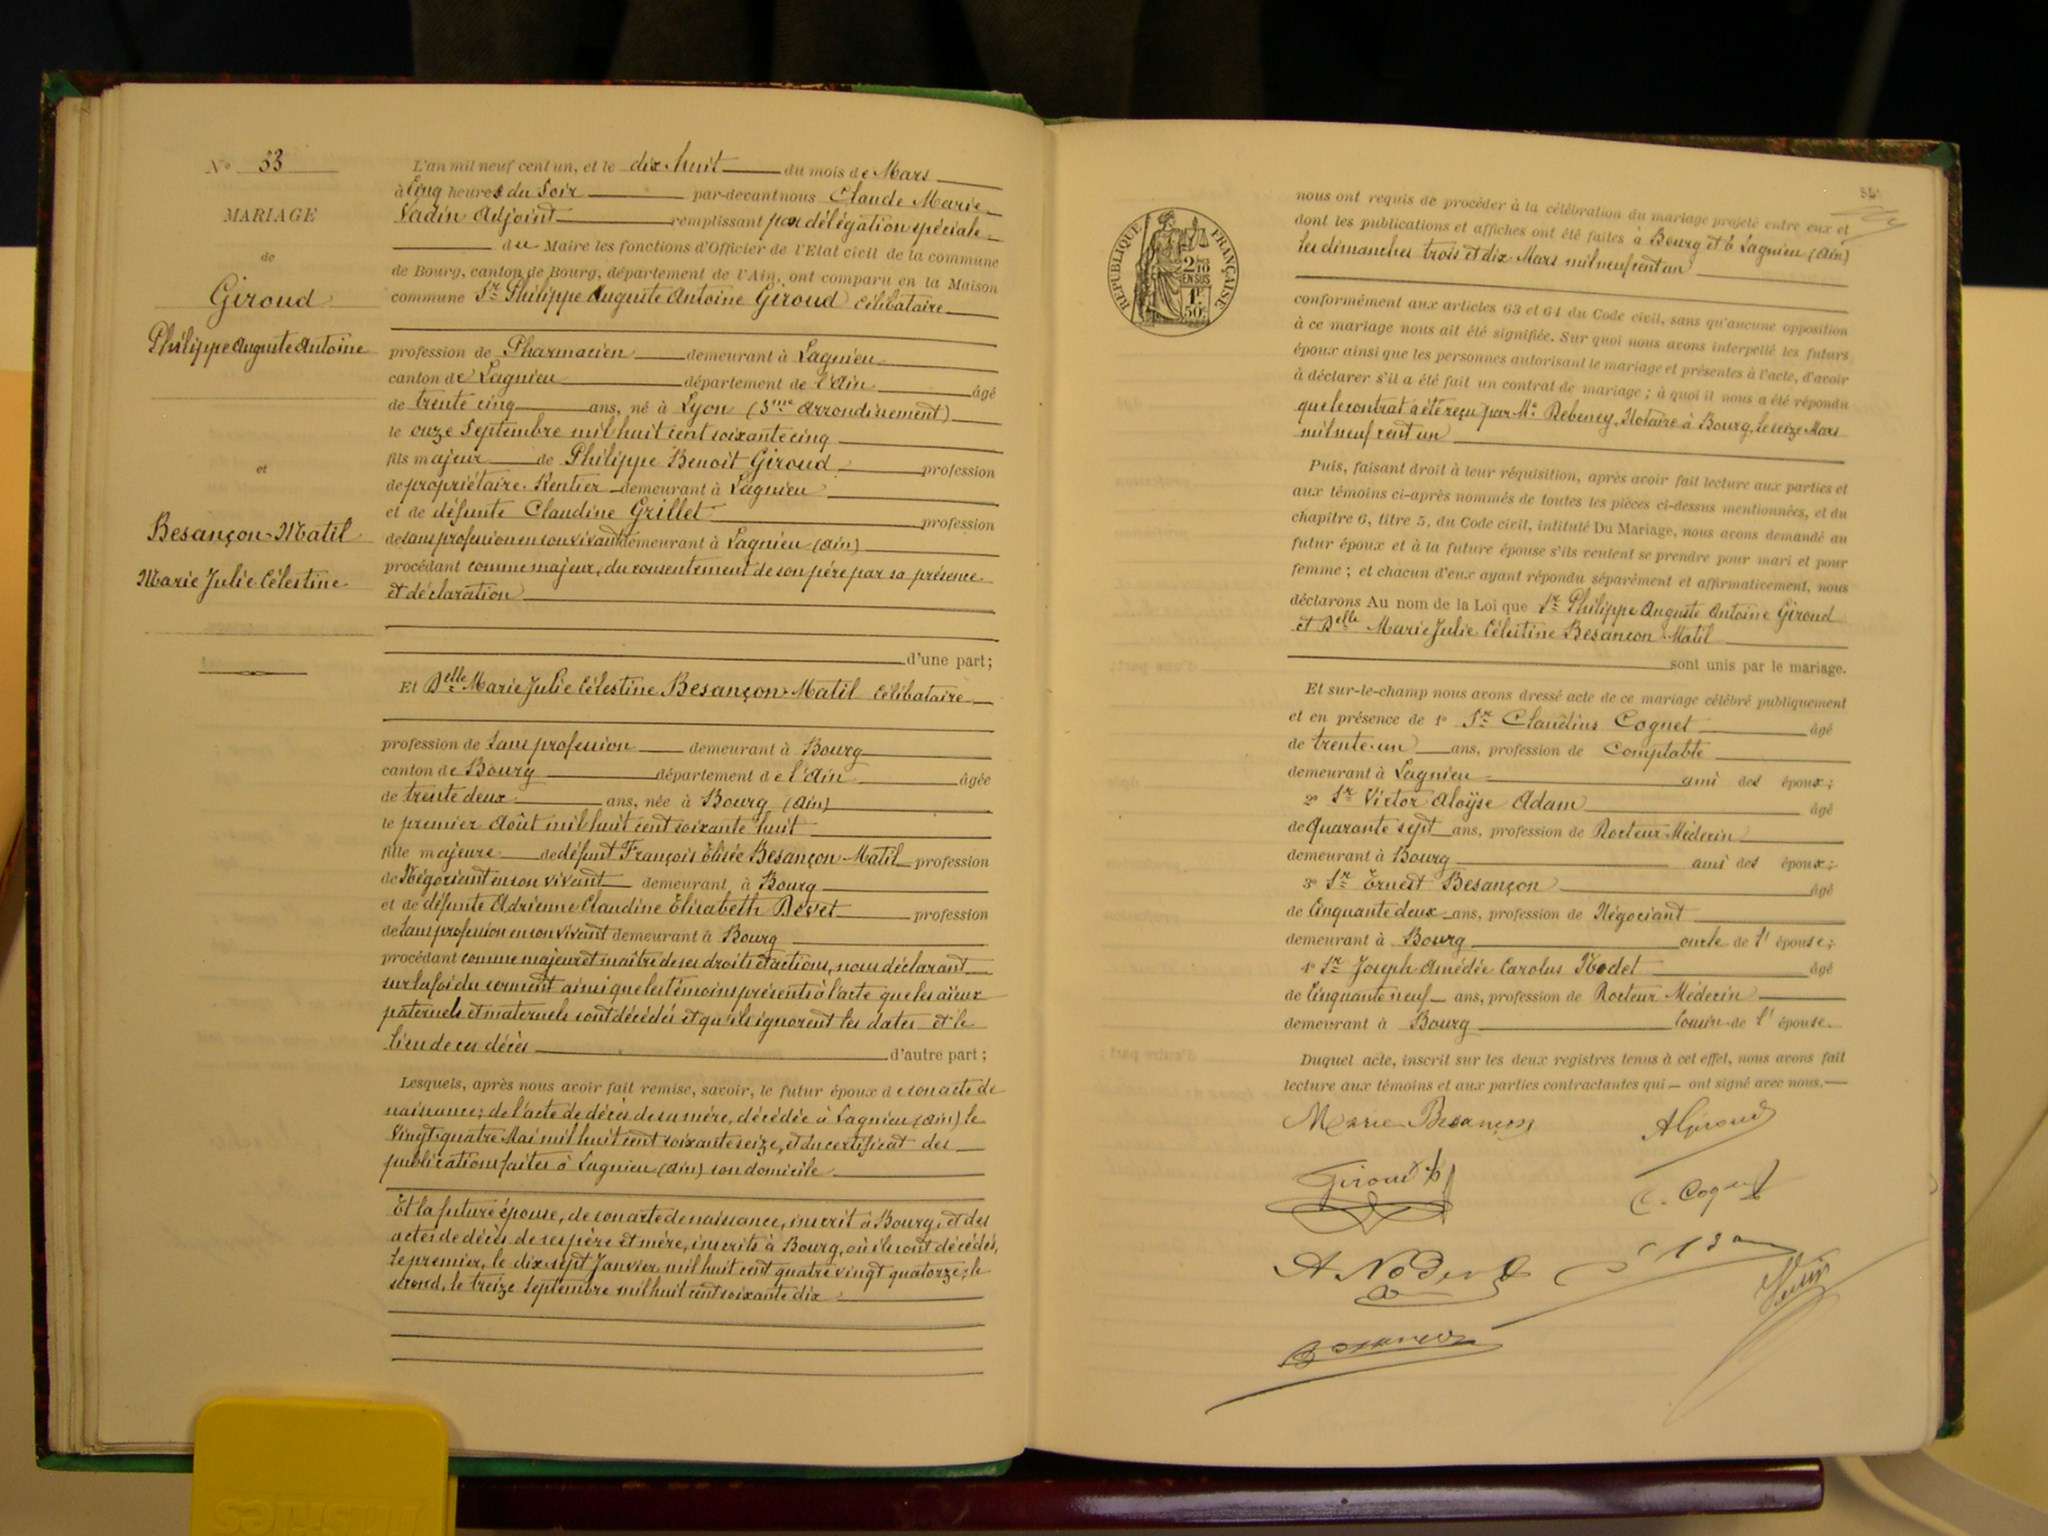 N° 53
MARIAGE
de
Giroud
Philippe Auguste Antoine
et
Besançon-Matil
Marie Julie Célestine
L'an mil neuf cent un, et le dix huit du mois de Mars
à Cinq heures du Soir par-devant nous Claude Marie
Vadin Adjoint remplissant par délégation spéciale
du Maire les fonctions d'Officier de l'Etat civil de la commune
de Bourg, canton de Bourg, département de l'Ain, ont comparu en la Maison
commune Sr Philippe Auguste Antoine Giroud Célibataire
profession de Pharmacien demeurant à Lagnieu
canton de Lagnieu département de l'Ain âgé
de trente cinq ans, né à Lyon (3me Arrondissement)
le onze Septembre mil huit cent soixante cinq
fils majeur de Philippe Benoit Giroud profession
de propriétaire-Rentier demeurant à Lagnieu
et de défunte Claudine Grillet profession
de sans profession en son vivant demeurant à Lagnieu (Ain)
procédant comme majeur, du consentement de son père par sa présence
et déclaration
d'une part;
Et Delle Marie Julie Célestine Besançon-Matil Célibataire
profession de Sans profession demeurant à Bourg
canton de Bourg département de l'Ain âgée
de trente deux ans, née à Bourg (Ain)
le premier Août mil huit cent soixante huit
fille majeure de défunt François Elisée Besançon-Matil profession
de Négociant en son vivant demeurant à Bourg
et de défunte Adrienne Claudine Elisabeth Devet profession
de Sans profession en son vivant demeurant à Bourg
procédant comme majeur et maître de ses droits et actions, nous déclarant
sur la foi du serment ainsi que les témoins présents à l'acte que les aïeux
paternels et maternels sont décédés et qu'ils ignorent les dates et le
lieu de ces décès d'autre part;
Lesquels, après nous avoir fait remise, savoir, le futur époux de son acte de
naissance; de l'acte de décès de sa mère, décédée à Lagnieu (Ain) le
Vingt-quatre Mai mil huit cent soixante seize, et du certificat des
publications faites à Lagnieu (Ain) son domicile
Et la future épouse, de son acte de naissance, inscrit à Bourg, et des
actes de décès de ses père et mère, inscrits à Bourg, où ils sont décédés,
le premier, le dix-sept Janvier mil huit cent quatre vingt quatorze; le
second, le treize Septembre mil huit cent soixante dix
RÉPUBLIQUE FRANÇAISE
2/10
EN SUS
1F
50c
nous ont requis de procéder à la célébration du mariage projeté entre eux et
dont les publications et affiches ont été faites à Bourg et à Lagnieu (Ain)
les dimanches trois et dix Mars mil neuf cent un
conformément aux articles 63 et 64 du Code civil, sans qu'aucune opposition
à ce mariage nous ait été signifiée. Sur quoi nous avons interpellé les futurs
époux ainsi que les personnes autorisant le mariage et présentes à l'acte, d'avoir
à déclarer s'il a été fait un contrat de mariage; à quoi il nous a été répondu
que le contrat a été reçu par Me Debeney, Notaire à Bourg, le seize Mars
mil neuf cent un
Puis, faisant droit à leur réquisition, après avoir fait lecture aux parties et
aux témoins ci-après nommés de toutes les pièces ci-dessus mentionnées, et du
chapitre 6, titre 5, du Code civil, intitulé Du Mariage, nous avons demandé au
futur époux et à la future épouse s'ils veulent se prendre pour mari et pour
femme; et chacun d'eux ayant répondu séparément et affirmativement, nous
déclarons Au nom de la Loi que Sr Philippe Auguste Antoine Giroud
et Delle Marie Julie Célestine Besancon-Matil
sont unis par le mariage.
Et sur-le-champ nous avons dressé acte de ce mariage célébré publiquement
et en présence de 1° Sr Claudius Cognet âgé
de trente-un ans, profession de Comptable
demeurant à Lagnieu ami des époux;
2° Sr Victor Aloÿse Adam âgé
de Quarante sept ans, profession de Docteur-Médecin
demeurant à Bourg ami des époux;
3° Sr Ernest Besançon âgé
de Cinquante deux ans, profession de Négociant
demeurant à Bourg oncle de l'épouse;
4° Sr Joseph Amédée Carolus Nodet âgé
de Cinquante neuf ans, profession de Docteur Médecin
demeurant à Bourg Cousin de l'épouse.
Duquel acte, inscrit sur les deux registres tenus à cet effet, nous avons fait
lecture aux témoins et aux parties contractantes qui ont signé avec nous.
Marie Besançon
A Giroud
Giroud
C. Cognet
A Nodet
Besançon